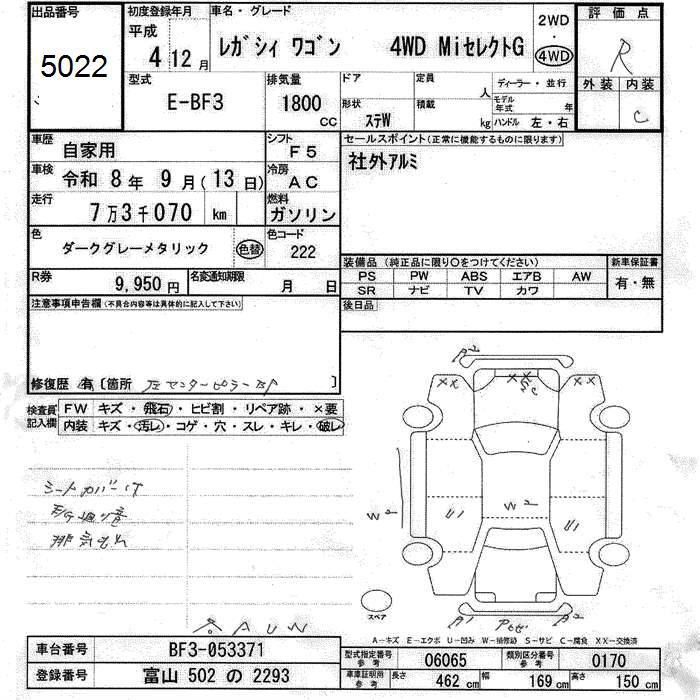 出品番号
5022
初度登録年月
平成
4 12月
車名・グレード
レガシィ ワゴン 4WD MiセレクトG
2WD
・
4WD
評価点
R
外装 内装
C
型式
E-BF3
排気量
1800
CC
ドア
定員
人
ディーラー・並行
モデル年式
年
形状
ステW
積載
kg
ハンドル 左・右
車歴
自家用
シフト
F5
車検
令和 8年 9月(13日)
冷房
AC
走行
7万3千070 km
燃料
ガソリン
色
ダークグレーメタリック
色替
色コード
222
R券
9,950円
名変通知期限
月 日
セールスポイント(正常に機能するものに限ります)
社外アルミ
装備品(純正品に限り○をつけてください)
PS PW ABS エアB AW
SR ナビ TV カワ
新車保証書
有・無
後日品
注意事項申告欄(不具合内容等は具体的に記入して下さい)
修復歴 有〔箇所 左センターピラー 〕
検査員記入欄
FW キズ・飛石・ヒビ割・リペア跡・×要
内装 キズ・汚レ・コゲ・穴・スレ・キレ・破レ
シートカバー付
排気もれ
A2
XX
XX
XX
W2
W2
U1
U1
スペア
A1
A2
A-キズ E-エクボ U-凹み W-補修跡 S-サビ C-腐食 XX-交換済
車台番号
BF3-053371
登録番号
富山 502 の 2293
型式指定番号
参考
06065
類別区分番号
参考
0170
車庫証明用
参考
長さ
462 cm
幅
169 cm
高さ
150 cm